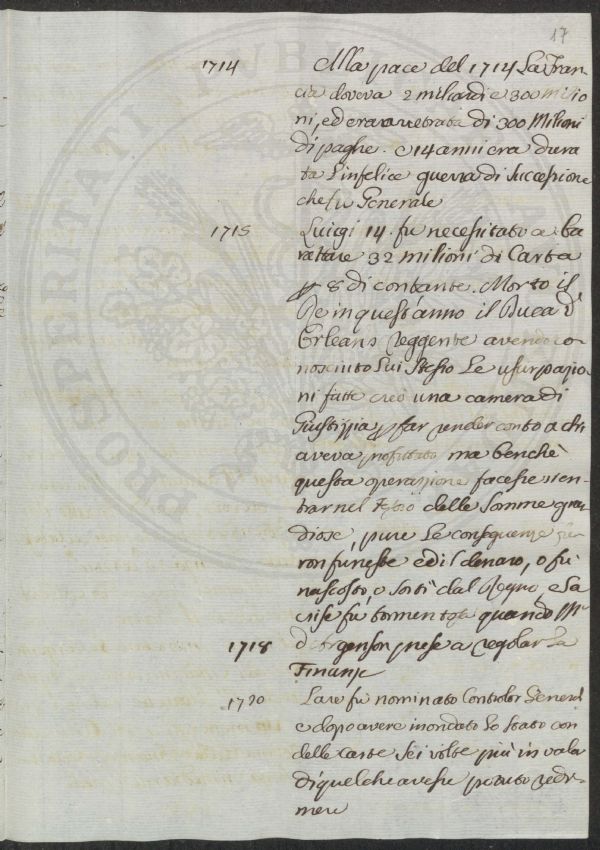 17
1714 Alla pace del 1714 La Fran-
cia doveva 2 miliardi e 300 Milio
ni, ed era arretrata di 300 Milioni
di paghe. e 14 anni era dura
ta L'infelice guerra di Successione
che fu Generale
1715 Luigi 14. fù necessitato a ba
rattare 32 milioni di Carta
p 8 di contante. Morto il
Re in quest'anno il Duca d'
Orleans Reggente avendo co
nosciuto Lui Stesso Le usurpazio
ni fatte creò una camera di
Giustizzia p far render conto a chi
aveva profittato ma benchè
questa operazione facesse rien-
trar nel Tesoro delle Somme gran
diose, pure Le conseguenze fu
ron funeste ed il denaro, o fù
nascosto, o sortì dal Regno, e la
crise fù tormentosa quando Mr
1718 d'Argenson prese a regolar La
Finanze
1720 Law fù nominato Controlor General
e dopo avere inondato Lo Stato con
delle Carte Sei volte più in valu
di quel che avesse potuto redi-
mere
PROSPERITATI PUBLICAE AUGENDAE